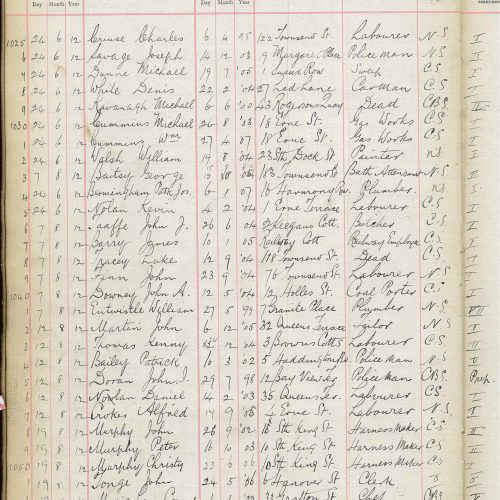 Day Month Year Day Month Year
1025 24 6 12 Cruise Charles 6 4 95 122 Townsend St. Labourer N.S. I
6 24 6 12 Savage Joseph 14 12 03 19 Margaret Place Police man N.S. I
7 24 6 12 Michael 19 7 05 1 Row Sweep C.S. I
8 24 6 12 White Denis 22 2 04 27 Lane Carman C.S. I
9 24 6 12 Kavanagh Michael 6 6 00 43 Rogersonsquay Dead CBS. III
1030 24 6 12 Cummins Michael 26 8 03 18 Erne St. Gas Works C.S. I
1 24 6 12 Cummins Wm 27 4 07 18 Erne St. Gas Works C.S. I
2 24 6 12 Walsh William 19 8 04 23 Sth. Dock St Painter N.S. I
3 7 8 12 George 06 183 Townsend St. Bath Attendant N.S. I
4 24 6 12 Birmingham Patk. Jos. 6 1 07 16 Harmony Plumber N.S. I
5 24 6 12 Nolan Kevin 4 2 04 1 Erne Terrace Labourer C.S. I
6 7 8 12 John J. 26 6 04 2 Keegans Cott. Butcher C.S. I
7 7 8 12 Barry James 10 1 05 Railway Cott Railway Employee C.S. I
8 7 8 12 Tracey Luke 12 9 04 118 Townsend St. Dead C.S. I
9 7 8 12 Finn John 23 9 04 76 Townsend St. Labourer N.S. I
1040 7 8 12 Downey John A. 12 5 04 12 Holles St. Coal Porter C.S. I
1 7 8 12 Entwistle William 27 5 99 7 Place Plumber N.S. VII
2 12 8 12 Martin John 6 12 05 32 Queens Terrace Tailor N.S. I
3 12 8 12 Thomas Kenny 12 04 3 Browns Cotts Labourer C.S. I
4 12 8 12 Bailey Patrick 10 3 02 5 Haddington Rd. Police man N.S. I
5 12 8 12 Doran John. J. 29 7 98 12 Bay View Ter. Police man CBS. Prep.
6 12 8 12 Nowlan Daniel 14 2 03 35 Queens Ter. Labourer C.S. I
7 12 8 12 Alfred 17 9 05 4 Erne St. Labourer N.S. I
8 19 8 12 Murphy John 26 9 02 10 Sth King St. Harness Maker C.S. II
9 19 8 12 Murphy Peter 16 10 03 10 Sth King St Harness Maker C.S. II
1050 19 8 12 Murphy Christy 23 6 00 10 Sth King St. Harness Maker C.S.
1 19 8 12 John 24 5 06 6 Hanover St. Clerk